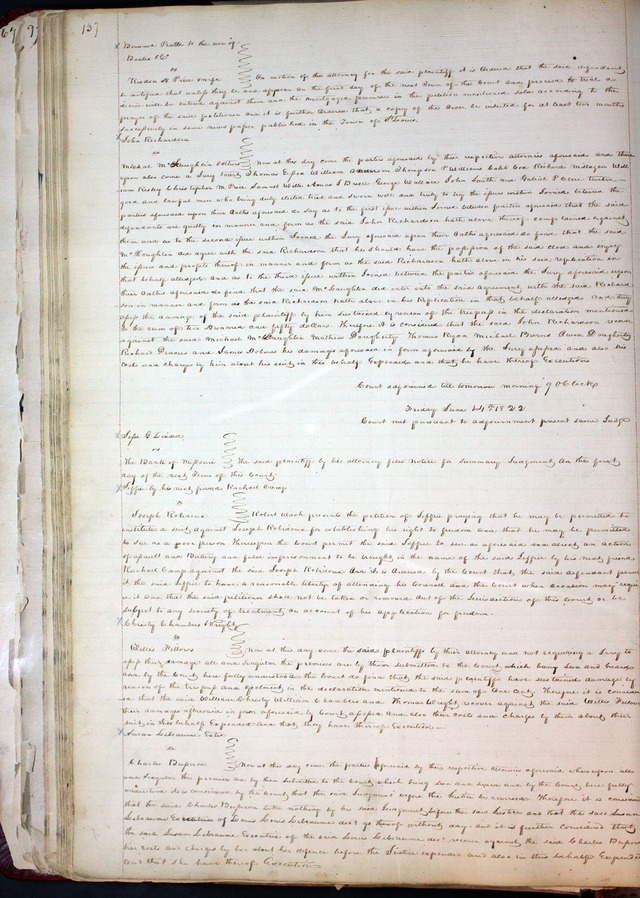 137
Bernard Pratte to the use of
Bosta &Co
vs
Risdon H Price & wife On motion of the attorney for the said plaintiff it is ordered that the said defendant
be notified that unless they be and appear on the first day of the next Term of this Court and proceed to trial a
decree will be entered against them and the mortgaged premises in the petition mentioned sold according to the
prayer of the said petitioner and it is further ordered that a copy of this order be inserted for at least two months
successively in some news paper published in the Town of St Louis
John Richardson
vs
Michael McLaughlin & others Now at this day come the parties aforesaid by their respective attornies aforesaid and there
upon also come a Jury to wit Thomas Essex William Anderson Thompson P Williams Richard Milligan
Kerley Christopher M Price Samuel Wells Amos J Bruce George Wallace John Smith and Gabriel twelve
good and lawful men who being duly elected tried and sworn well and truly to try the issues within Joined between the
parties aforesaid upon their Oaths aforesaid do say as to the first issue within Joined between parties aforesaid that the said
defendants are guilty in manner and form as the said John Richardson hath above thereof complained against
them and as to the second issue within Joined the Jury aforesaid upon their Oaths aforesaid do find that the said
McLoughlin did agree with the said Richardson that he should have the possession of the said close and enjoy
the issues and profits thereof in manner and form as the said Richardson hath above in his said replication in
that behalf alledged and as to the third issue within Joined between the parties aforesaid the Jury aforesaid upon
their Oaths aforesaid do find that the said McLaughlin did enter into the said agreement with the said Richard
son in manner and form as the said Richardson hath above in his Replication in that behalf alledged And they
assess the damage of the said plaintiff by him sustained by reason of the trespass in the declaration mentioned
to the sum of two Hundred and fifty dollars. Therefore it is considered that the said John Richardson recover
against the said Michael McLaughlin Mathew Dougherty Thomas Ryan Michael Burns Owen Dougherty
Richard Deacus and James Dolores his damages aforesaid in form aforesaid by the Jury assessed and also his
costs and charges by him about his suit in this behalf Expended and that he have thereof Execution
Court adjourned till tomorrow morning 9 O Clock
Friday June 1822
Court met pursuant to adjournment present same Judge
Jesse G Lindell
vs
The Bank of Missouri The said plaintiff by his attorney files notice for Summary Judgment on the first
day of the next Term of this County
Jeffrie by his next friend Rachael Camp
vs
Joseph Robidoux Robert Wash presents the petition of Jeffrie praying that he may be permitted to
institute a suit against Joseph Robidoux for establishing his right to freedom and that he may be permitted
to sue as a poor person Thereupon the Court permit the said Jeffrie to sue as aforesaid and direct an action
of assault and Battery and false imprisonment to be brought in the name of the said Jeffrie by his next friend
Rachael Camp against the said Joseph Robidoux And it is Ordered by the Court that, the said defendant perm
it the said Jeffrie to have a reasonable liberty of attending his Counsel and the Court when occasion may requir
e it And that the said petitioner shall not be taken or removed out of the Jurisdiction of this County or be
subject to any severity of treatment on account of his application for freedom.
Christy Chambers & Wright
vs
Willis Fellows Now at this day come the said plaintiffs by their attorney and not requiring a Jury to
assess their damage all and singular the premises are by them submitted to the Court, which being seen and heard
and by the Court here fully understood the Court do find that the said plaintiffs have sustained damages by
reason of the trespass and ejectment in the declaration mentioned to the sum of one Cent Therefore it is consider
ed that the said William Christy William Chambers and Thomas Wright recover against the said Willis Fellows
their damages aforesaid in form aforesaid by Court assessed and also their costs and charges by them about their
suit in this behalf Expended And that they have thereof Execution
Susan Lebeaume Extx
vs
Charles Dupuis Now at this day come the parties aforesaid by their respective attornies aforesaid whereupon all
and singular the premises are by them submitted to the Court, which being seen and heard and by the Court here fully
understood It is considered by the Court that the said Judgment before the Justice be reversed. Therefore it is consider
that the said Charles Dupuis take nothing by his said Judgment before the said Justice and that the said Susan
Lebeaume Executrix of Louis Lebeaume decd go thereof without day. and it is further considered that
the said Susan Lebeaume Executrix of the said Louis Lebeaume decd recover against the said Charles Dupuis
her costs and charges by her about her defence before the Justice expended and also in this behalf Expended
And that she have thereof Execution